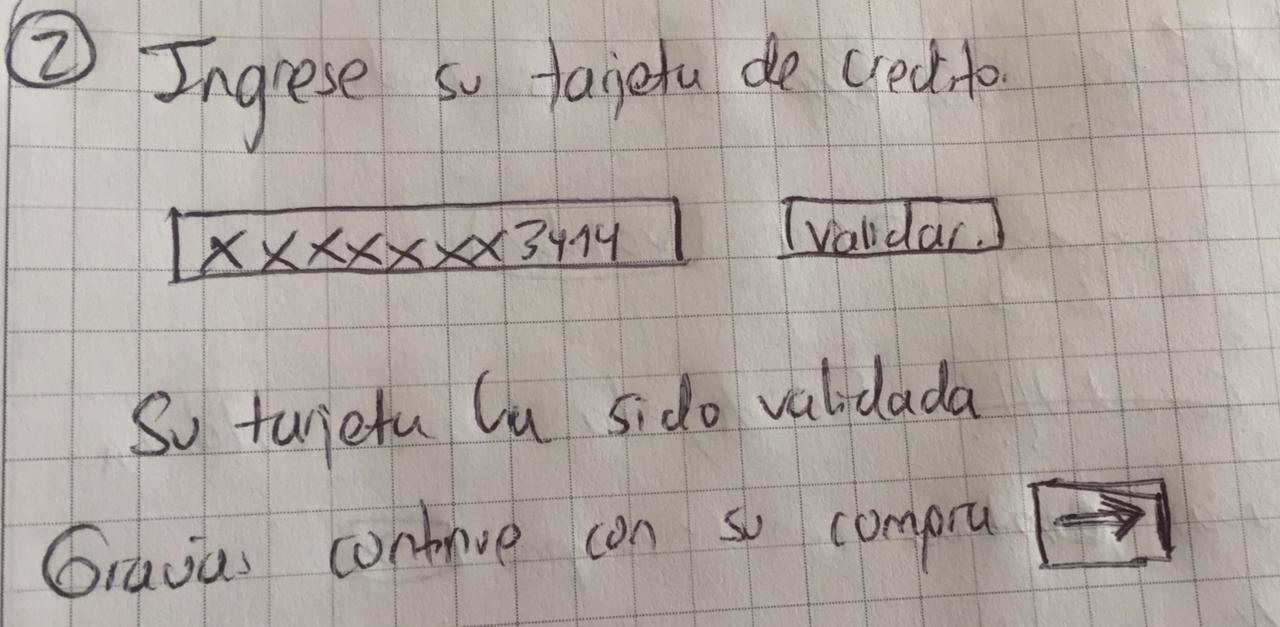 2 Ingrese su tarjeta de credito.
XXXXXXX3414 validar.
Su tarjeta ha sido validada
Gracias continue con su compra →